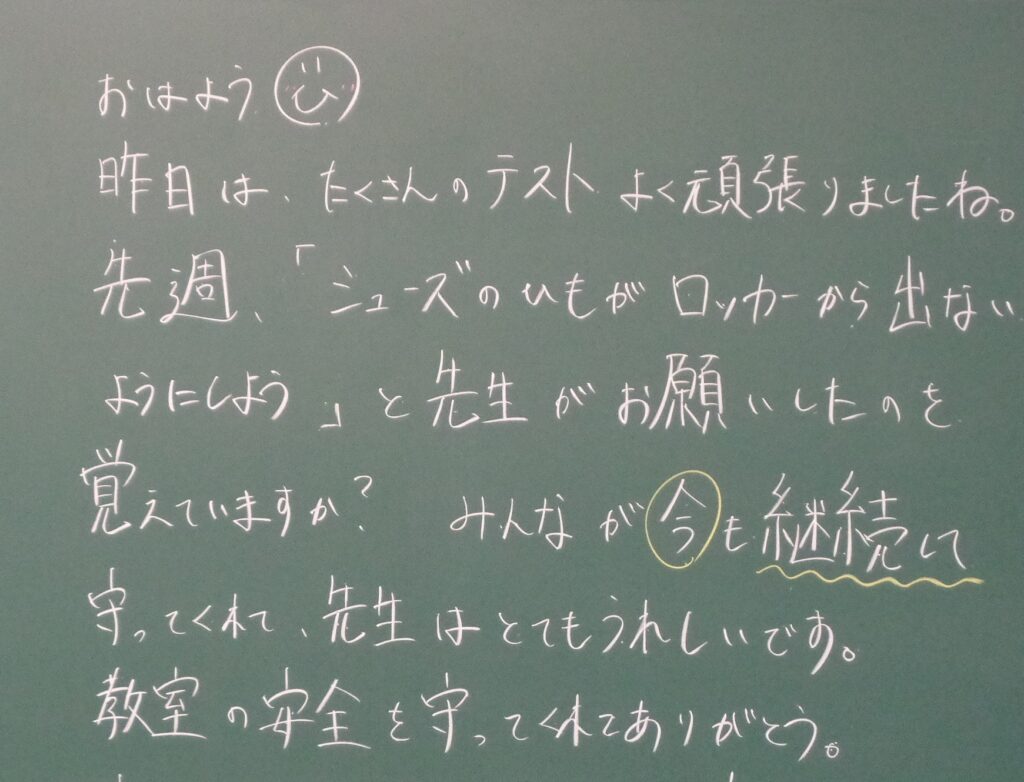 おはよう
昨日は、たくさんのテストよく頑張りましたね。
先週、「シューズのひもがロッカーから出ない
ようにしよう」と先生がお願いしたのを
覚えていますか？ みんなが今も継続して
守ってくれて、先生はとてもうれしいです。
教室の安全を守ってくれてありがとう。